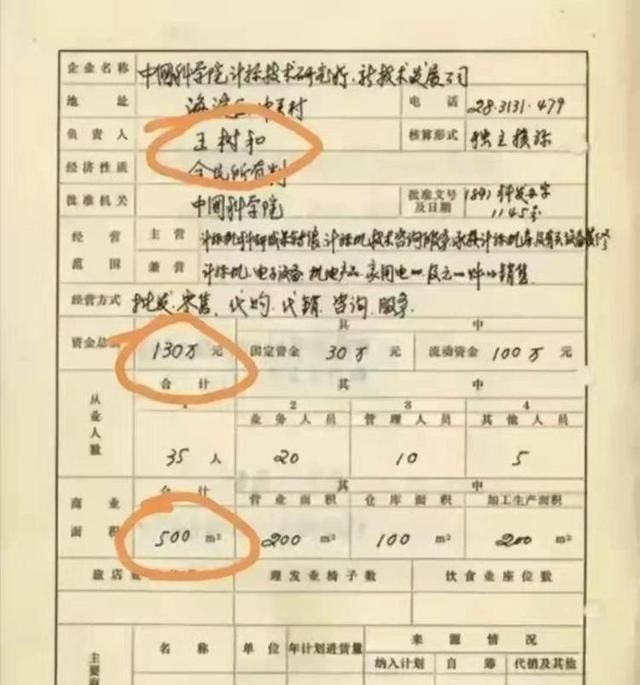 企业名称 中国科学院计算技术研究所新技术发展公司
地址 海淀区中关村 电话 28.3131-479
负责人 王树和 核算形式 独立核算
经济性质 全民所有制
批准机关 中国科学院 批准文号及日期 1145号
经营范围 主营 计算机技术咨询服务
兼营 计算机、电子设备、机电产品、家用电 销售
经营方式 批发、零售、代购、代销、咨询、服务
其中
资金总额 130万元 固定资金 30万元 流动资金 100万元
从业人数 合计 其中
1 2 3 4
业务人员 管理人员 其他人员
35人 20 10 5
商业面积 合计 其中
营业面积 仓库面积 加工生产面积
500 m² 200 m² 100 m² 200 m²
旅店 理发业椅子数 饮食业座位数
主要商 名称 单位 年计划进货量 来源情况
纳入计划 自筹 代销及其他